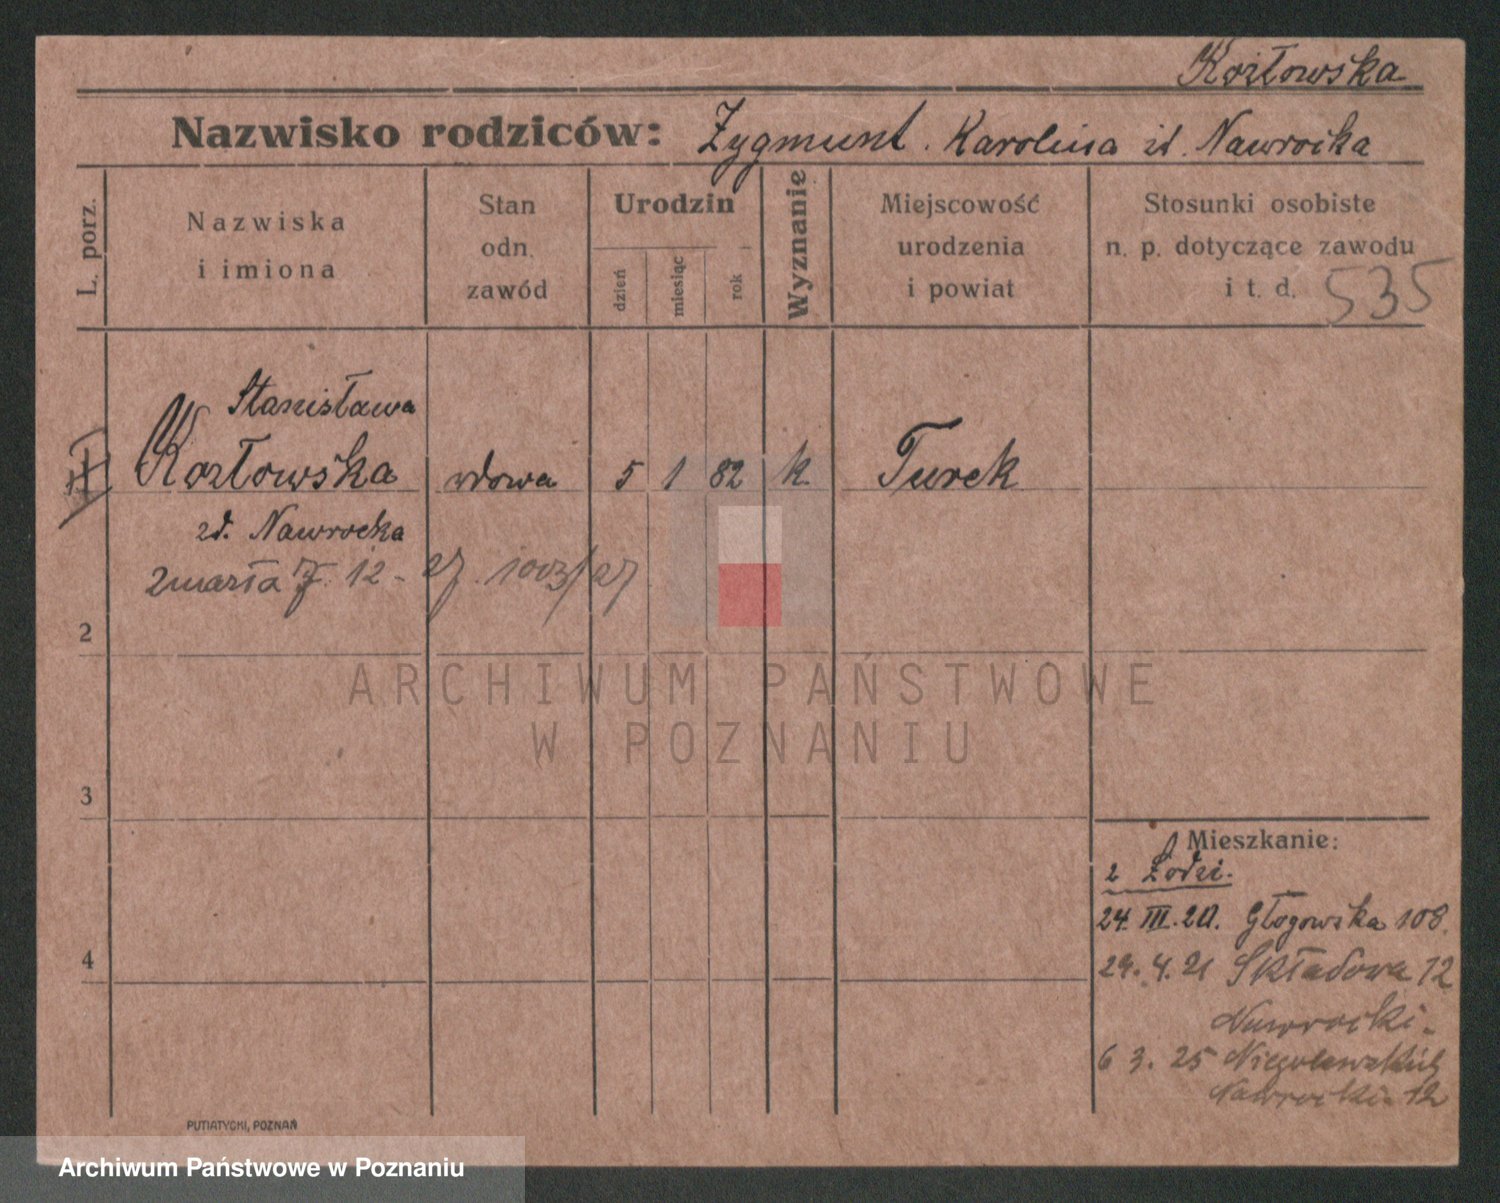 Kozłowska
Nazwisko rodziców: Zygmunt. Karolina zd. Nawrocka
L. porz.
Nazwiska
i imiona
Stan
odn.
zawód
Urodzin
dzień
miesiąc
rok
Wyznanie
Miejscowość
urodzenia
i powiat
Stosunki osobiste
n. p. dotyczące zawodu
i t. d. 535
Stanisława
Kozłowska wdowa 5 1 82 k. Turek
zd. Nawrocka
zmarła 7. 12 - 27. 1003/27
2
ARCHIWUM PAŃSTWOWE
W POZNANIU
3
Mieszkanie:
z Łodzi.
24. III. 20. Głogowska 108.
29. 4. 21 Składowa 12
Nawrocki -
6 3. 25 Niegolewskich
Nawrocki 12
4
PUTIATYCKI, POZNAŃ
Archiwum Państwowe w Poznaniu